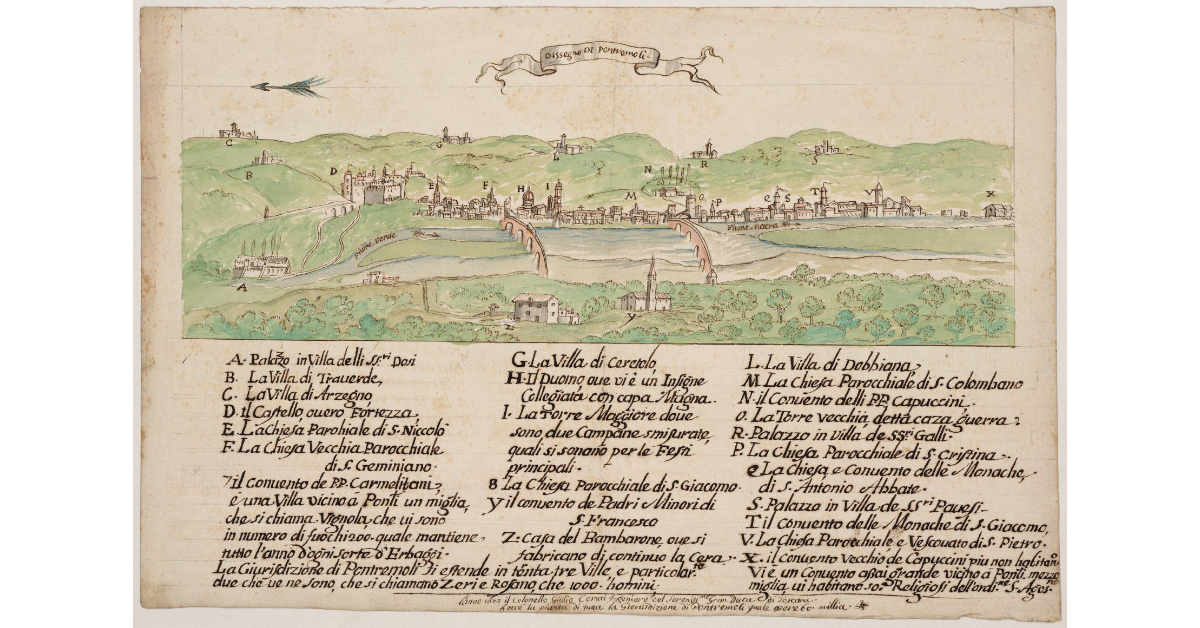 Dissegno DI Pontremoli
C
G
L
R
S
B
D
E
F
H
I
N
M
O
P
Q
S
T
V
X
Fiume Verde
Fiume Macra
A
Z
Y
A. Palazo in Villa delli SS.ri Dosi
B. La Villa di Trauerde,
C. La Villa di Arzegno
D. il Castello ouero Fortezza,
E. La Chiesa Parohiale di S. Niccolo
F. La Chiesa Vecchia Parocchiale
di S. Geminiano.
7 il Conuento de P.P. Carmelitani,
è una Villa vicino à Ponti un miglia,
che si chiama Vignola, che ui sono
in numero di fuochi 200. quale mantiene
tutto l'anno d'ogni sorte d'Erbaggi.
G. La Villa di Ceretolo,
H. Il Duomo, oue vi è un Insigne
Collegiata con capa Magna.
I. La Torre Maggiore doue
sono due Campane smisurate,
quali si sonano per le Festi
principali.
8 La Chiesa Parocchiale di S. Giacomo.
Y il conuento de Padri Minori di
S. Francesco
Z. casa del Bambarone, oue si
fabricano di continuo la Cera,
L. La Villa di Dobbiana,
M. La Chiesa Parocchiale di S. Colombano
N. il Conuento delli P.P. Capuccini
O. La Torre vecchia detta caza guerra
R. Palazzo in villa de SS.ri Galli.
P. La Chiesa Parocchiale di S. Cristina
Q La Chiesa e Conuento delle Monache,
di S. Antonio Abbate.
S. Palazo in Villa de SS.ri Pauesi.
T. il Conuento delle Monache di S. Giacomo,
V. La Chiesa Parocchiale e Vescouato di S. Pietro.
X. il Conuento Vecchio de Capuccini piu non habitano
Vi è un Conuento assai grande vicino à Ponti mezzo
miglia, ui habitano Religiosi dell'ordine S. Agos.no
La Giurisdizione di Pontremoli si estende in tanta tre Ville e particolar.te
due che ue ne sono, che si chiamano Zeri e Rosano, che 1000. homini.
Anno il Colonello Giulio Cerai Ingeniere del Sereniss.mo Gran Duca di Toscana.
la pianta di tutta la Giurisdizione di Pontremoli quale 60. millia.